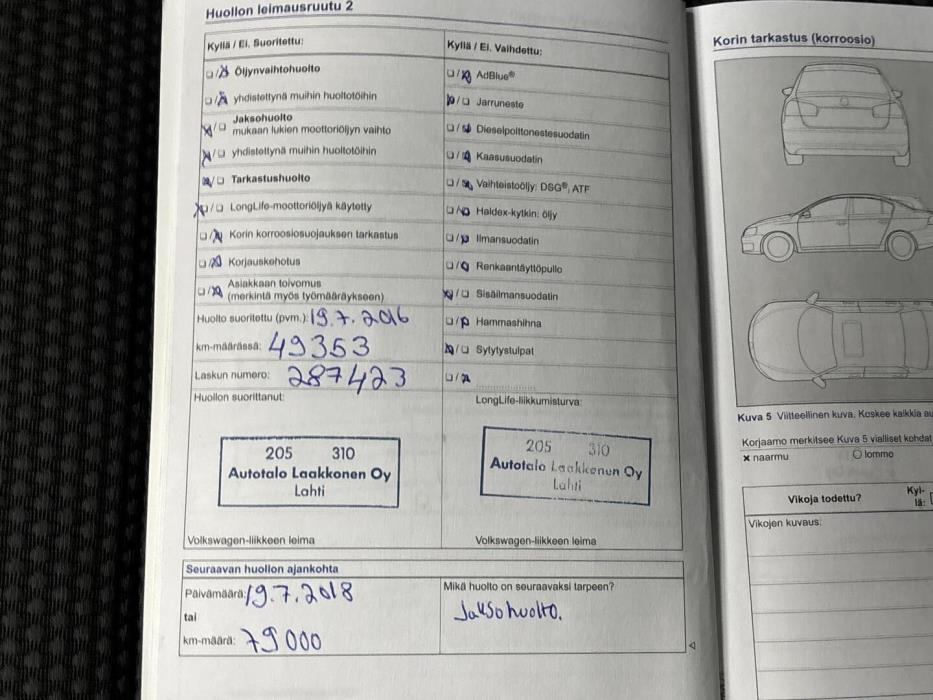 Huollon leimausruutu 2
Kyllä / Ei. Suoritettu:
Öljynvaihtohuolto
yhdistettynä muihin huoltotöihin
Jaksohuolto
mukaan lukien moottoriöljyn vaihto
yhdistettynä muihin huoltotöihin
Tarkastushuolto
LongLife-moottoriöljyä käytetty
Korin korroosiosuojauksen tarkastus
Korjauskehotus
Asiakkaan toivomus
(merkintä myös työmääräykseen)
Huolto suoritettu (pvm.): 19.7.2016
km-määrässä: 49353
Laskun numero: 287423
Huollon suorittanut:
205 310
Autotalo Laakkonen Oy
Lahti
Volkswagen-liikkeen leima
Kyllä / Ei. Vaihdettu:
AdBlue®
Jarruneste
Dieselpolttonestesuodatin
Kaasusuodatin
Vaihteistoöljy: DSG®, ATF
Haldex-kytkin: öljy
Ilmansuodatin
Renkaantäyttöpullo
Sisäilmansuodatin
Hammashihna
Sytytystulpat
LongLife-liikkumisturva:
205 310
Autotalo Laakkonen Oy
Lahti
Volkswagen-liikkeen leima
Seuraavan huollon ajankohta
Päivämäärä: 19.7.2018
tai
km-määrä: 79000
Mikä huolto on seuraavaksi tarpeen?
Jaksohuolto.
Korin tarkastus (korroosio)
Kuva 5 Viitteellinen kuva. Koskee kaikkia au
Korjaamo merkitsee Kuva 5 vialliset kohdat
× naarmu
lommo
Vikoja todettu?
Kyl-
lä:
Vikojen kuvaus: